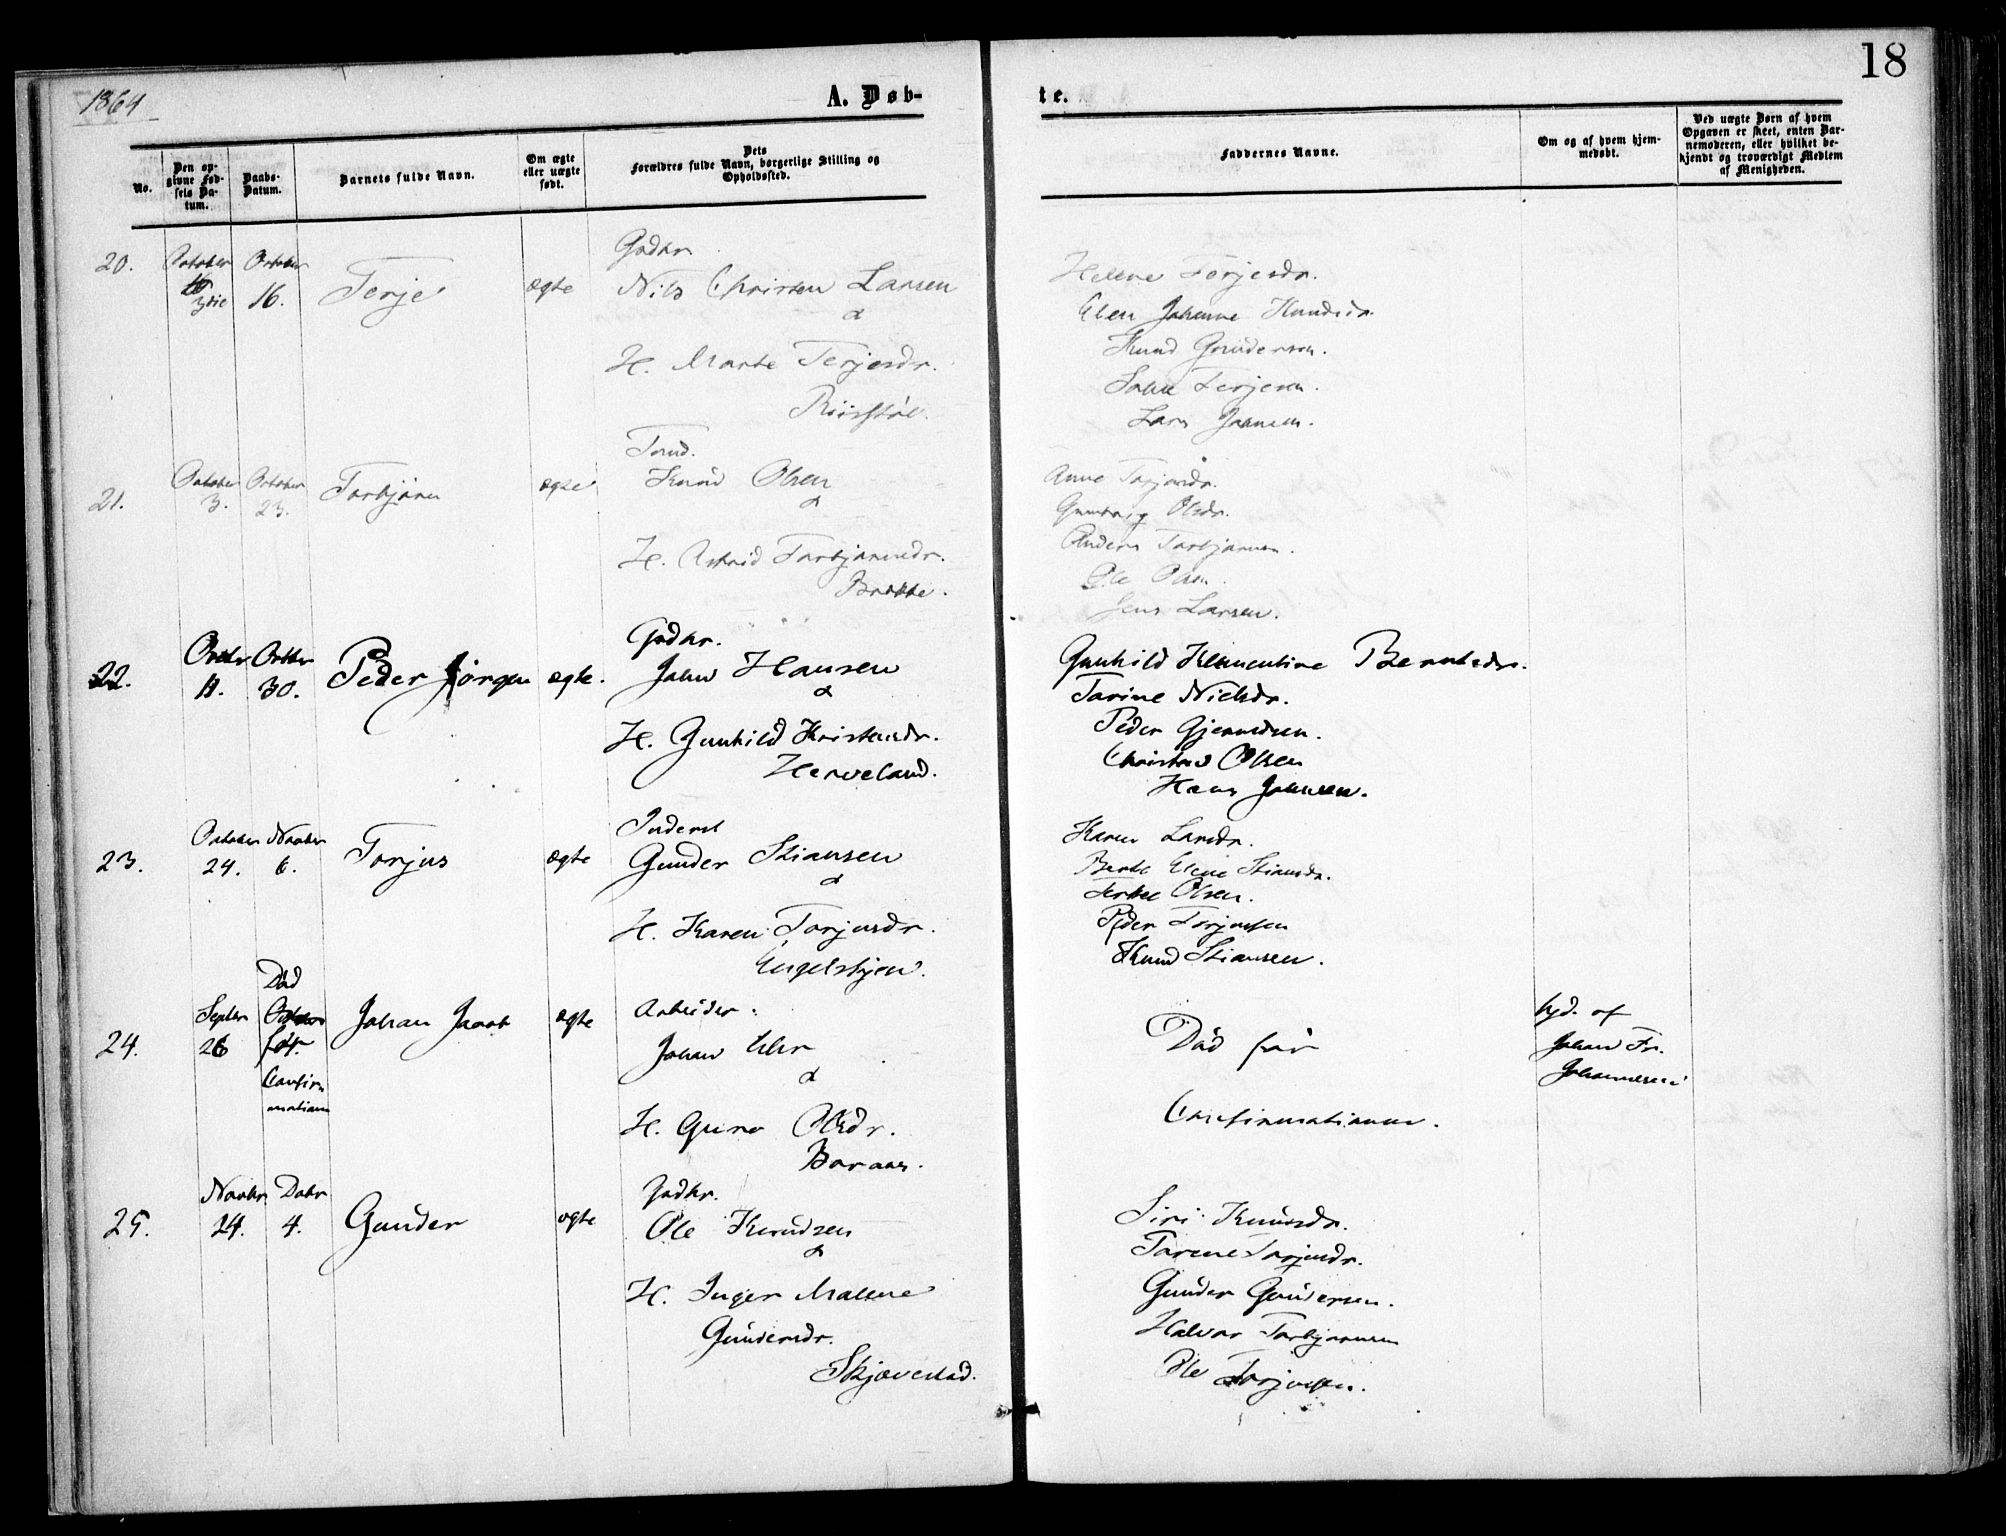 18
1864
A. Døb-
te.
No.
Den op-
givne Fød-
sels Da-
tum.
Daabs-
Datum.
Barnets fulde Navn.
Om ægte
eller uægte
født.
Dets
Forældres fulde Navn, borgerlige Stilling og
Opholdssted.
Faddernes Navne.
Om og af hvem hjem-
medøbt.
Ved uægte Børn af hvem
Opgaven er skeet, enten Bar-
nemoderen, eller hvilket be-
kjendt og troværdigt Medlem
af Menigheden.
20.
October
3die
October
16.
Terje
ægte
Gadbr
Nils Christen Larsen
&
H. Marte Terjesdr.
Helene Terjesdr.
Elen Johanne Knudsdr.
Knud Gundersen.
Terjesen.
Lars Johnsen.
21.
October
3.
October
23.
Torbjørn
ægte
Knud Olsen
&
H. Astrid Torbjørnsdr.
Brække.
Anne Torjusdr.
Olsdr.
Anders Torbjørnsen.
Ole Olsen.
Jens Larsen.
22.
Octbr
11.
Octbr
30.
Peder Jørgen
ægte.
Gadbr.
John Hansen
&
H. Gunhild Kristensdr.
Herveland.
Gunhild Klementine Berntsdr.
Tarine Nielsdr.
Peder Gjermundsen.
Christen Olsen
Hans Johnsen.
23.
October
24.
Novber
6.
Torjus
ægte
Inderst
Gunder Stiansen
&
H. Karen Torjusdr.
Engelskjøn.
Karen Larsdr.
Berthe Elene Stiansdr.
Terkel Olsen.
Peder Torjussen
Knud Stiansen.
24.
Septbr
26
Død
før
Confir-
mationen
Johan Jacob
ægte
Arbeider.
Johan Uhr
&
H. Guro Olsdr.
Boraas.
Død før
Confirmationen.
hjd. af
Johan Fr.
Johannesen
25.
Novbr
24.
Decbr
4.
Gunder
ægte
Gadbr.
Ole Knudsen
&
H. Inger Malene
Gundersdr.
Skjævestad.
Siri Knudsdr.
Tarine Torjusdr.
Gunder Gundersen.
Halvor Torbjørnsen
Ole Torjussen.